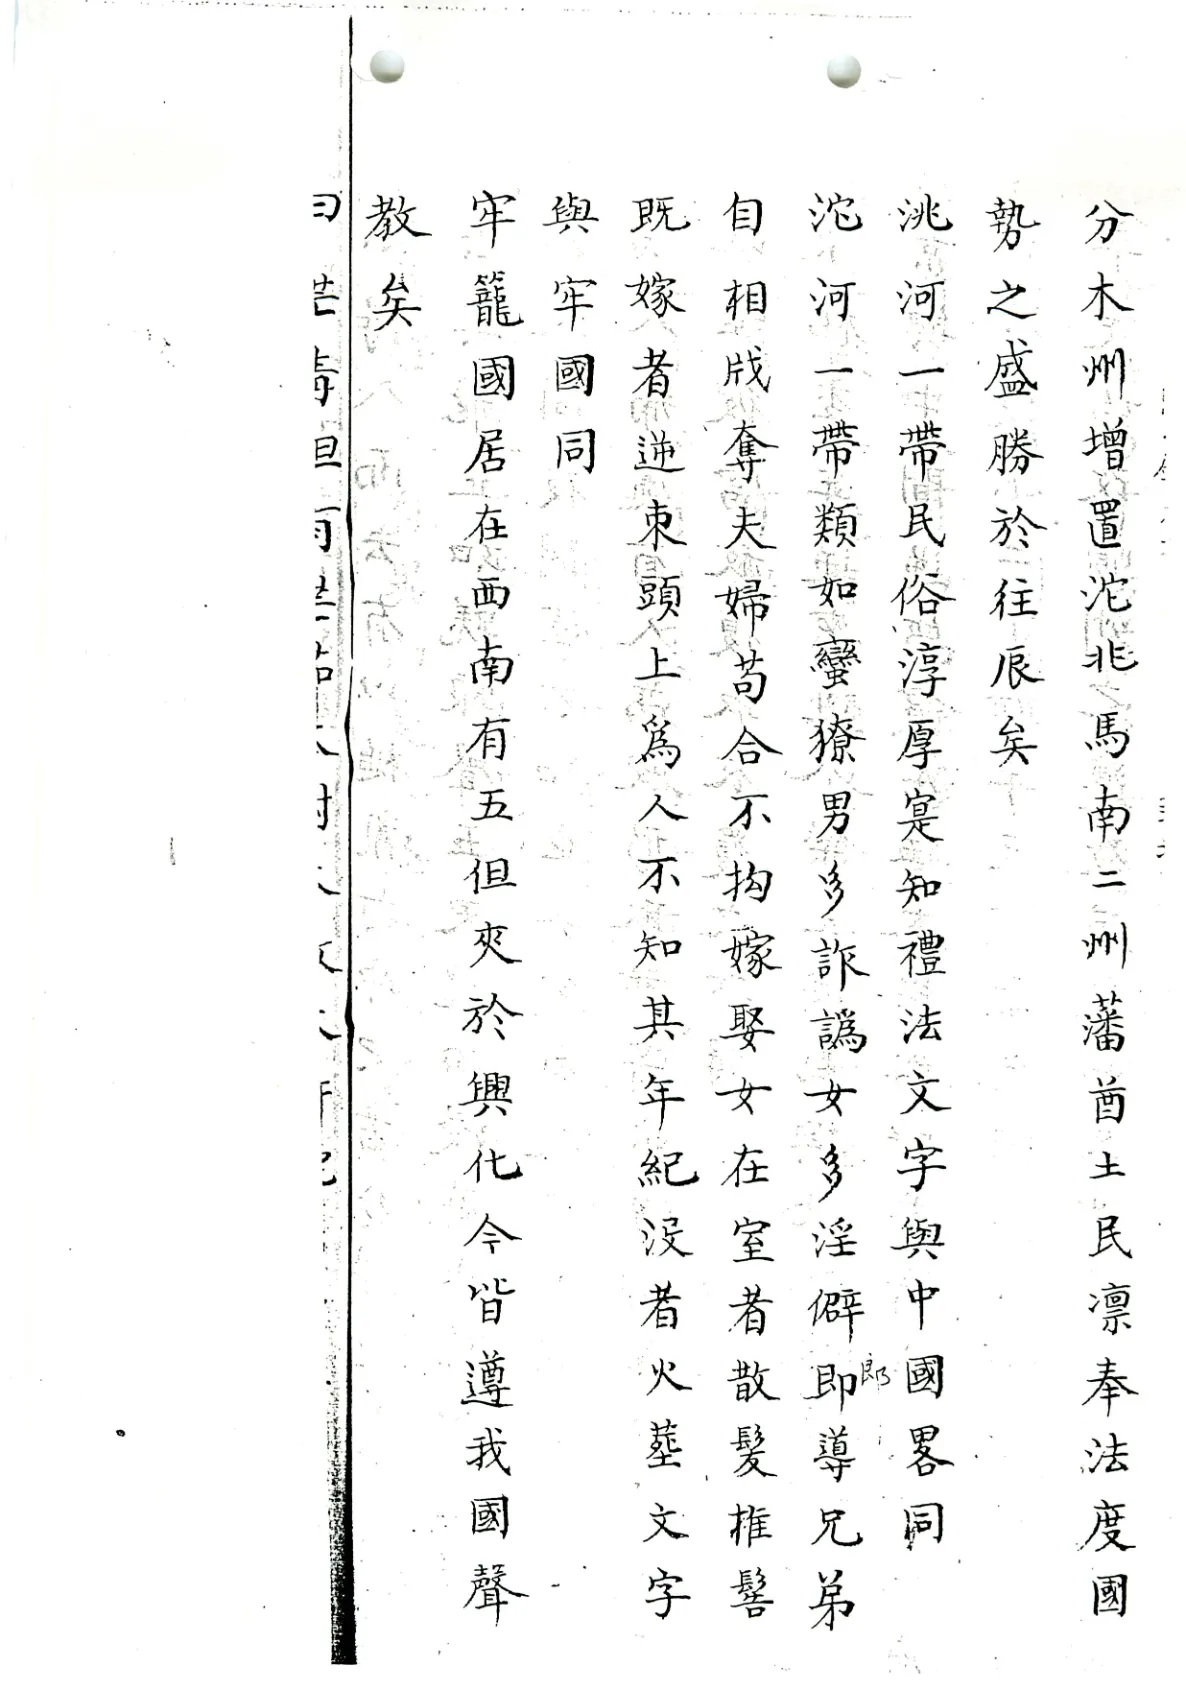 分木州增置沱兆馬南二州藩酋土民凛奉法度國
勢之盛勝於往辰矣
洮河一帶民俗淳厚寔知禮法文字與中國畧同
沱河一帶類如蠻獠男多詐譌女多淫僻即導兄弟
郎
自相戕奪夫婦苟合不拘嫁娶女在室者散髮椎髻
既嫁者逆束頭上爲人不知其年紀没者火塟文字
與牢國同
牢籠國居在西南有五但夾於興化今皆遵我國聲
教矣